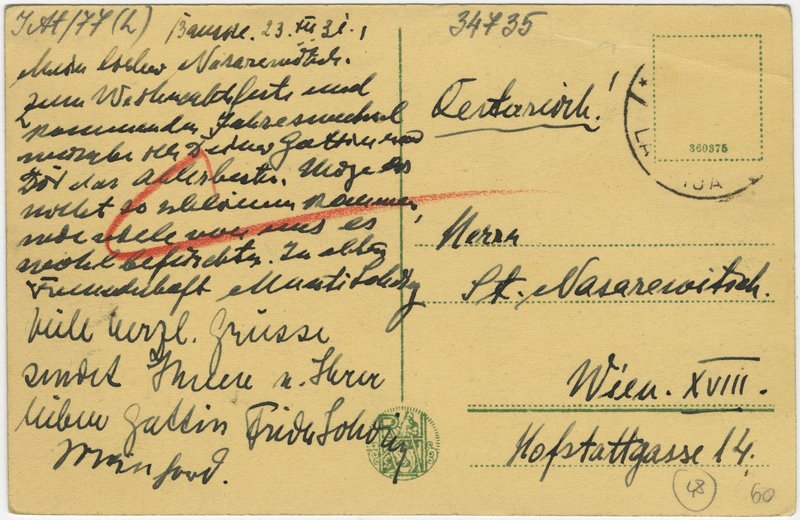 34735
Bauske. 23. XII 31.
Mein lieber Nasarewitsch.
zum Weihnachtsfeste und
kommenden Jahreswechsel
wünsche ich Deiner Gattin und
Dir das Allerbeste. Möge es
nicht so schlimm kommen,
wie viele von uns es
wohl befürchten. In alter
Freundschaft
Viele herzl. Grüsse
sendet Ihnen u. Ihrer
lieben Gattin
Manfred.
Oesterreich!
360375
LA
Herrn
St. Nasarewitsch.
Wien. XVIII.
Hofstattgasse 14.
48
60